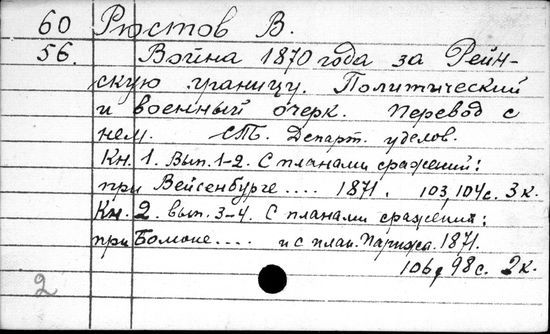 60 Рюстов В.
56. Война 1870 года за Рейн-
скую границу. Политический
и военный очерк. Перевод с
нем. СПб. Департ. уделов.
Кн. 1. Вып. 1-2. С планами сражений:
при Вейсенбурге .... 1871. 103, 104 с. 3 к.
Кн. 2. вып. 3-4. С планами сражения:
при Бомоне .... и с план. Парижа. 1871.
106, 98 с. 2 к.
2